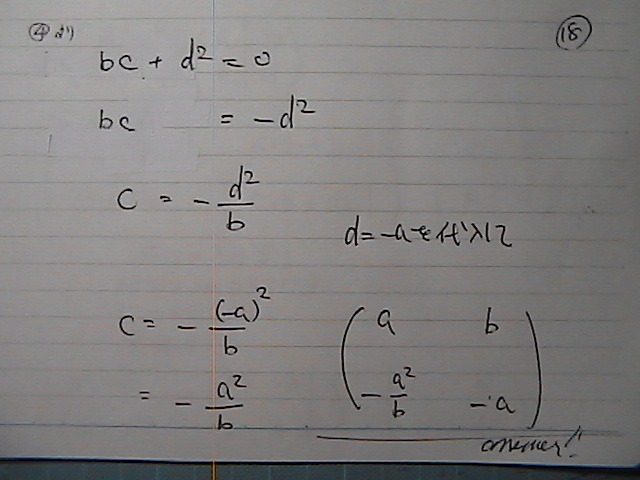 ④より
⑱
bc + d² = 0
bc = -d²
c = - d²/b
d = -aを代入して
c = - (-a)²/b
= - a²/b
( a b
-a²/b -a )
answer!!